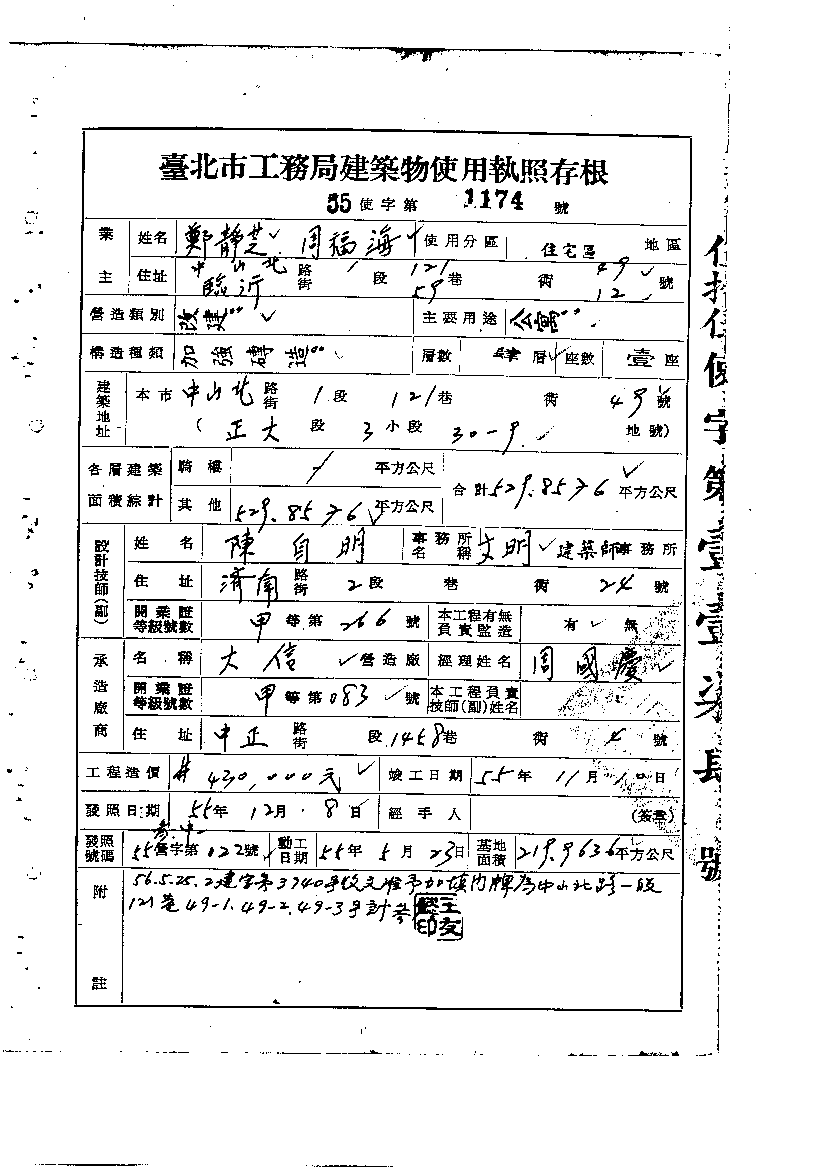 臺北市工務局建築物使用執照存根
55使字第 1174 號
業主 姓名 鄭靜芝 周福海 使用分區 住宅區 地區
住址 中山北 路街 1段 121巷 衖 49號
臨沂 59 12
營造類別 改建 主要用途 公寓
構造種類 加強磚造 層數 肆層 座數 壹座
建築地址 本市 中山北 路街 1段 121巷 衖 49號
(正大段 3小段 30-9 地號)
各層建築面積綜計 騎樓 / 平方公尺 合計 529.8576 平方公尺
其他 529.8576 平方公尺
設計技師(副) 姓名 陳自明 事務所名稱 文明 建築師事務所
住址 濟南 路街 2段 巷 衖 24號
開業證等級號數 甲等第266號 本工程有無負責監造 有 無
承造廠商 名稱 大信 營造廠 經理姓名 周國慶
開業證等級號數 甲等第083號 本工程負責技師(副)姓名
住址 中正 路街 段 1458巷 衖 4號
工程造價 430,000元 竣工日期 55年11月10日
發照日期 55年12月8日 經手人 (簽章)
發照號碼 55營字第122號 動工日期 55年5月23日 基地面積 219.9636平方公尺
附註 56.5.25.2建字第3940號收文准予加填門牌為中山北路一段
121巷49-1.49-2.49-3號計參
使字第壹壹柒肆號